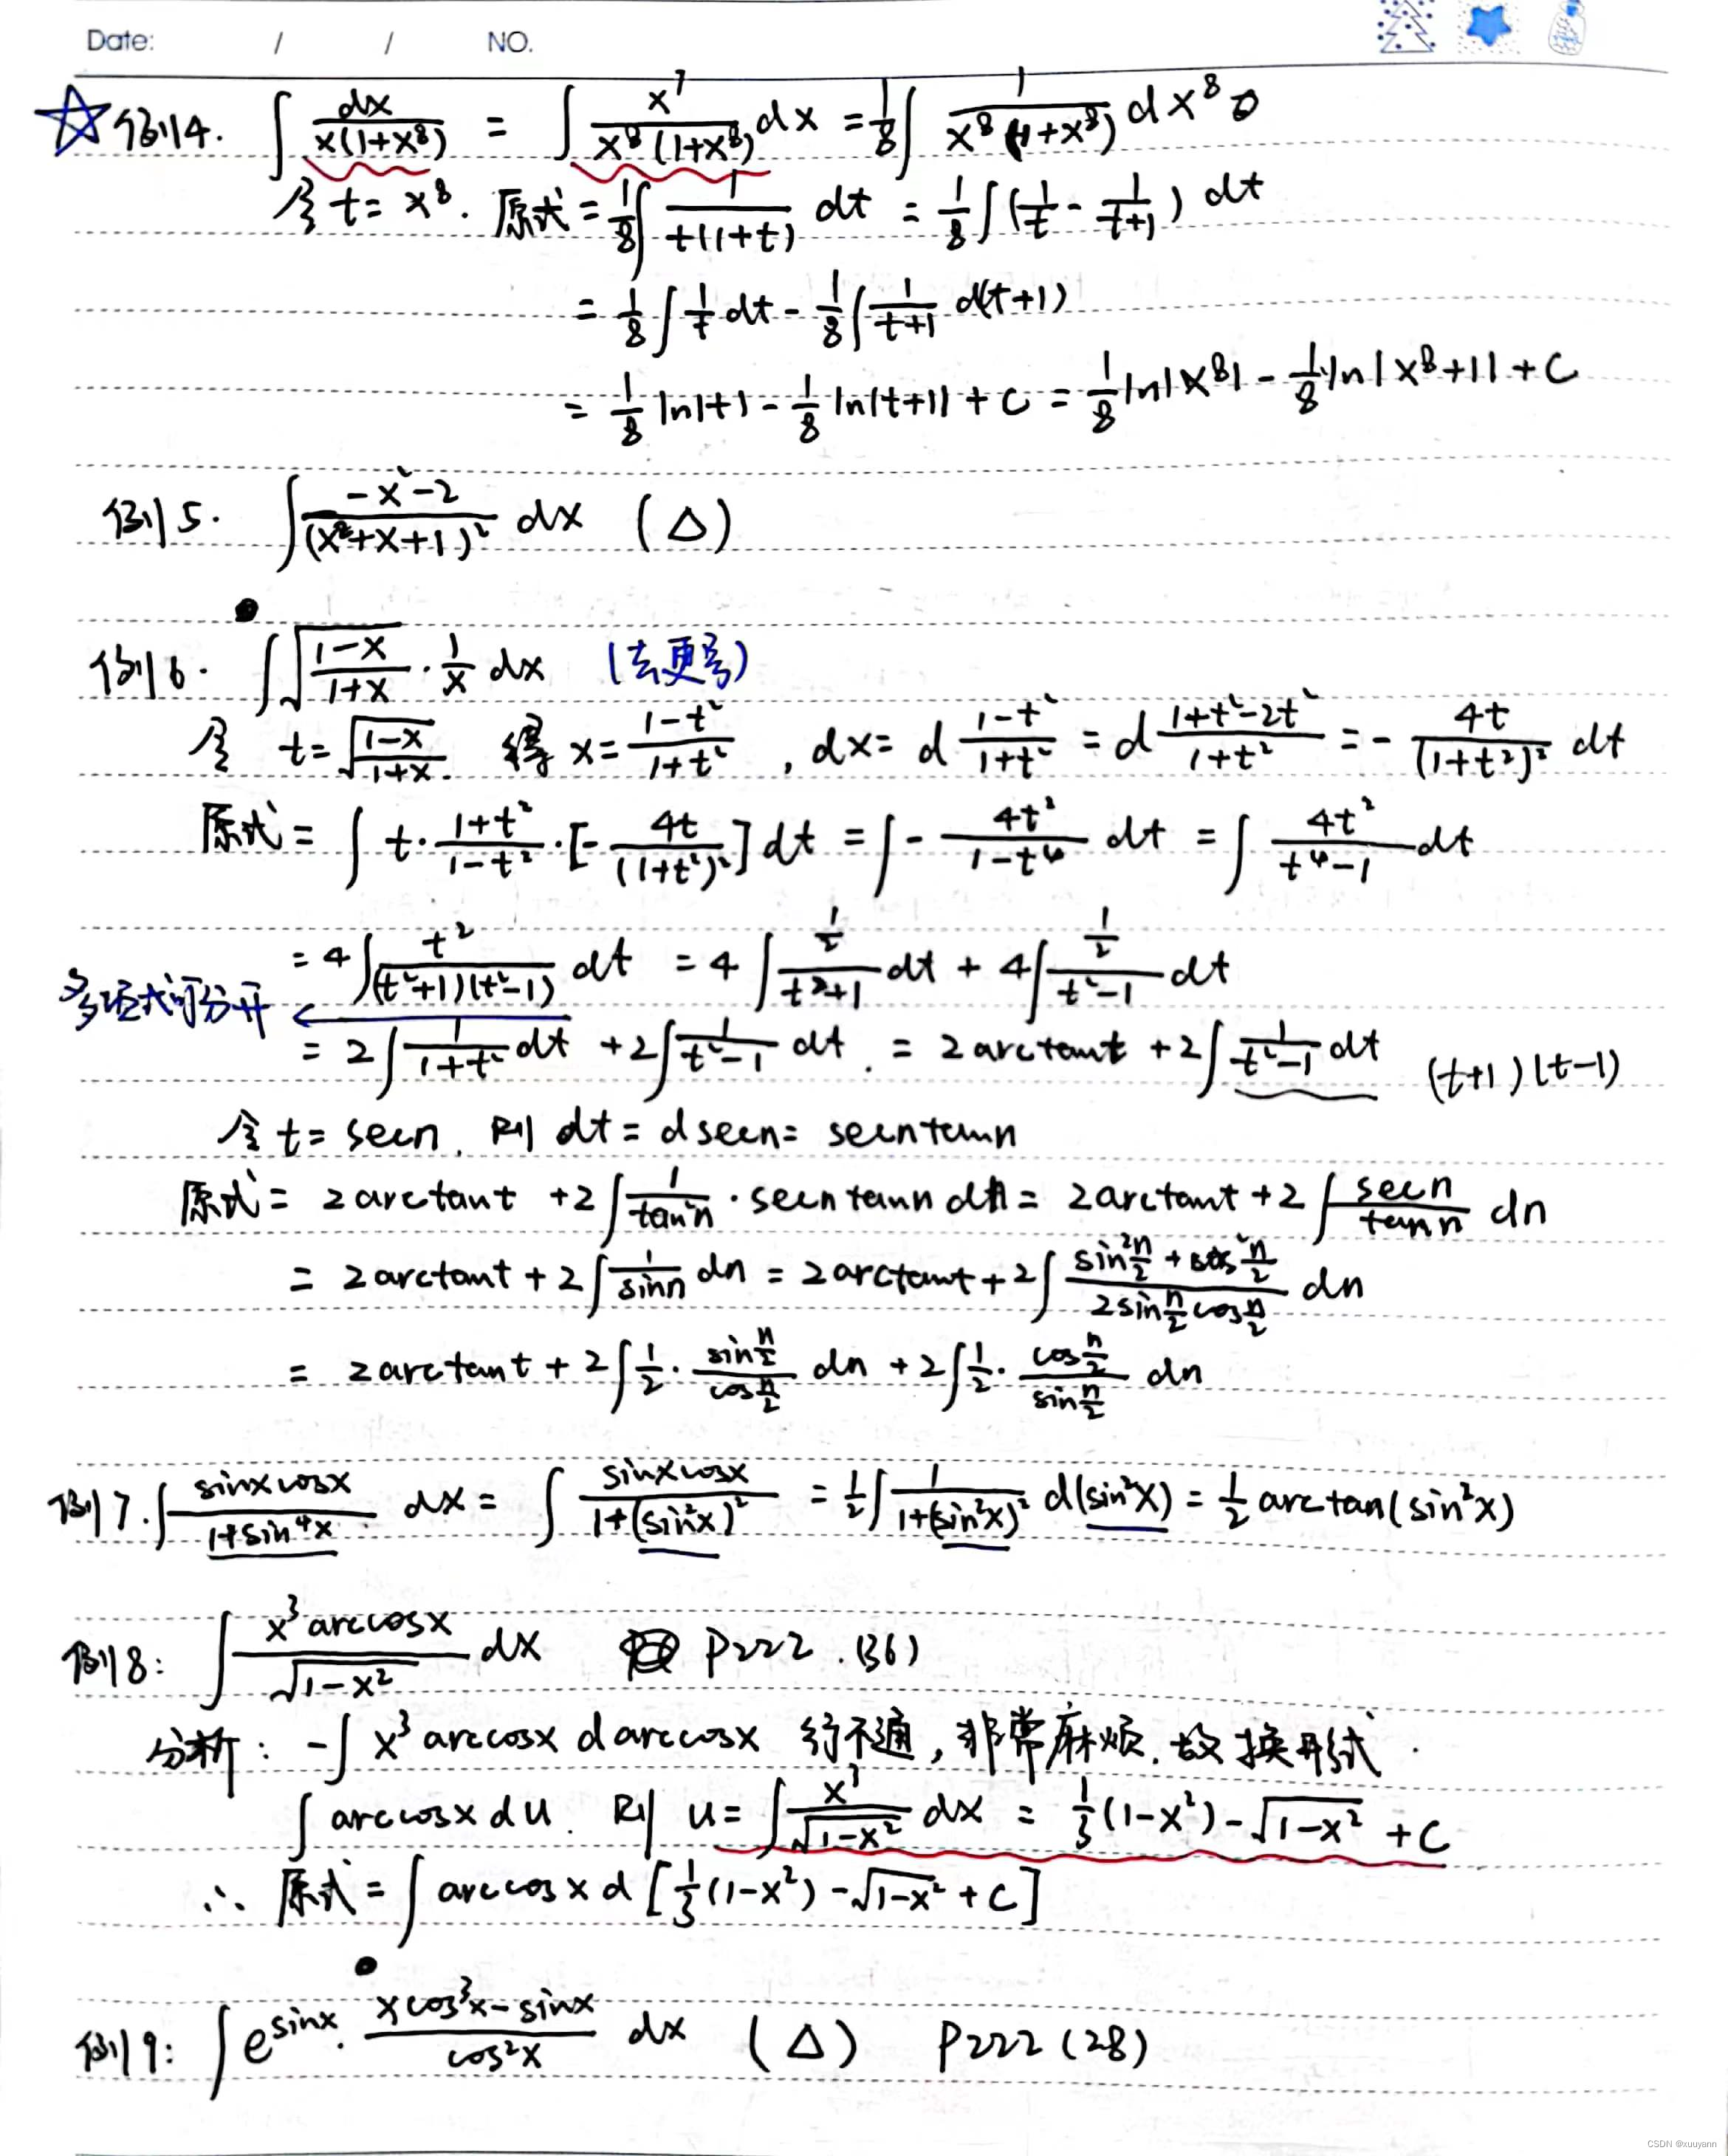 Date: / / NO.
☆例4. ∫ dx/(x(1+x⁸)) = ∫ x⁷/(x⁸(1+x⁸)) dx = 1/8 ∫ 1/(x⁸(1+x⁸)) dx⁸
令 t = x⁸. 原式 = 1/8 ∫ 1/(t(1+t)) dt = 1/8 ∫ (1/t - 1/(t+1)) dt
= 1/8 ∫ 1/t dt - 1/8 ∫ 1/(t+1) d(t+1)
= 1/8 ln|t| - 1/8 ln|t+1| + C = 1/8 ln|x⁸| - 1/8 ln|x⁸+1| + C
例5. ∫ (-x²-2)/(x²+x+1)² dx (△)
例6. ∫ √((1-x)/(1+x)) · 1/x dx (去更号)
令 t = √((1-x)/(1+x)). 得 x = (1-t²)/(1+t²), dx = d (1-t²)/(1+t²) = d (1+t²-2t²)/(1+t²) = - 4t/(1+t²)² dt
原式 = ∫ t · (1+t²)/(1-t²) · [- 4t/(1+t²)²] dt = ∫ - 4t²/(1-t⁴) dt = ∫ 4t²/(t⁴-1) dt
= 4 ∫ t²/((t²+1)(t²-1)) dt = 4 ∫ (1/2)/(t²+1) dt + 4 ∫ (1/2)/(t²-1) dt
多项式可分开 ←
= 2 ∫ 1/(1+t²) dt + 2 ∫ 1/(t²-1) dt. = 2 arctan t + 2 ∫ 1/(t²-1) dt (t+1)(t-1)
令 t = sec n. 则 dt = d sec n = sec n tan n
原式 = 2 arctan t + 2 ∫ 1/tan²n · sec n tan n dn = 2 arctan t + 2 ∫ sec n/tan n dn
= 2 arctan t + 2 ∫ 1/sin n dn = 2 arctan t + 2 ∫ (sin² n/2 + cos² n/2)/(2 sin n/2 cos n/2) dn
= 2 arctan t + 2 ∫ 1/2 · (sin n/2)/(cos n/2) dn + 2 ∫ 1/2 · (cos n/2)/(sin n/2) dn
例7. ∫ sinx cosx/(1+sin⁴x) dx = ∫ sinx cosx/(1+(sin²x)²) = 1/2 ∫ 1/(1+(sin²x)²) d(sin²x) = 1/2 arctan(sin²x)
例8: ∫ x³ arccosx/√(1-x²) dx P222. (36)
分析: -∫ x³ arccosx d arccosx 行不通, 非常麻烦. 故换形式.
∫ arccosx du. 则 u = ∫ x³/√(1-x²) dx = 1/3 (1-x²) - √(1-x²) + C
∴ 原式 = ∫ arccos x d [1/3 (1-x²) - √(1-x²) + C]
例9: ∫ e^sinx · (x cos³x - sinx)/cos²x dx (△) P222 (28)
CSDN @xuuyann